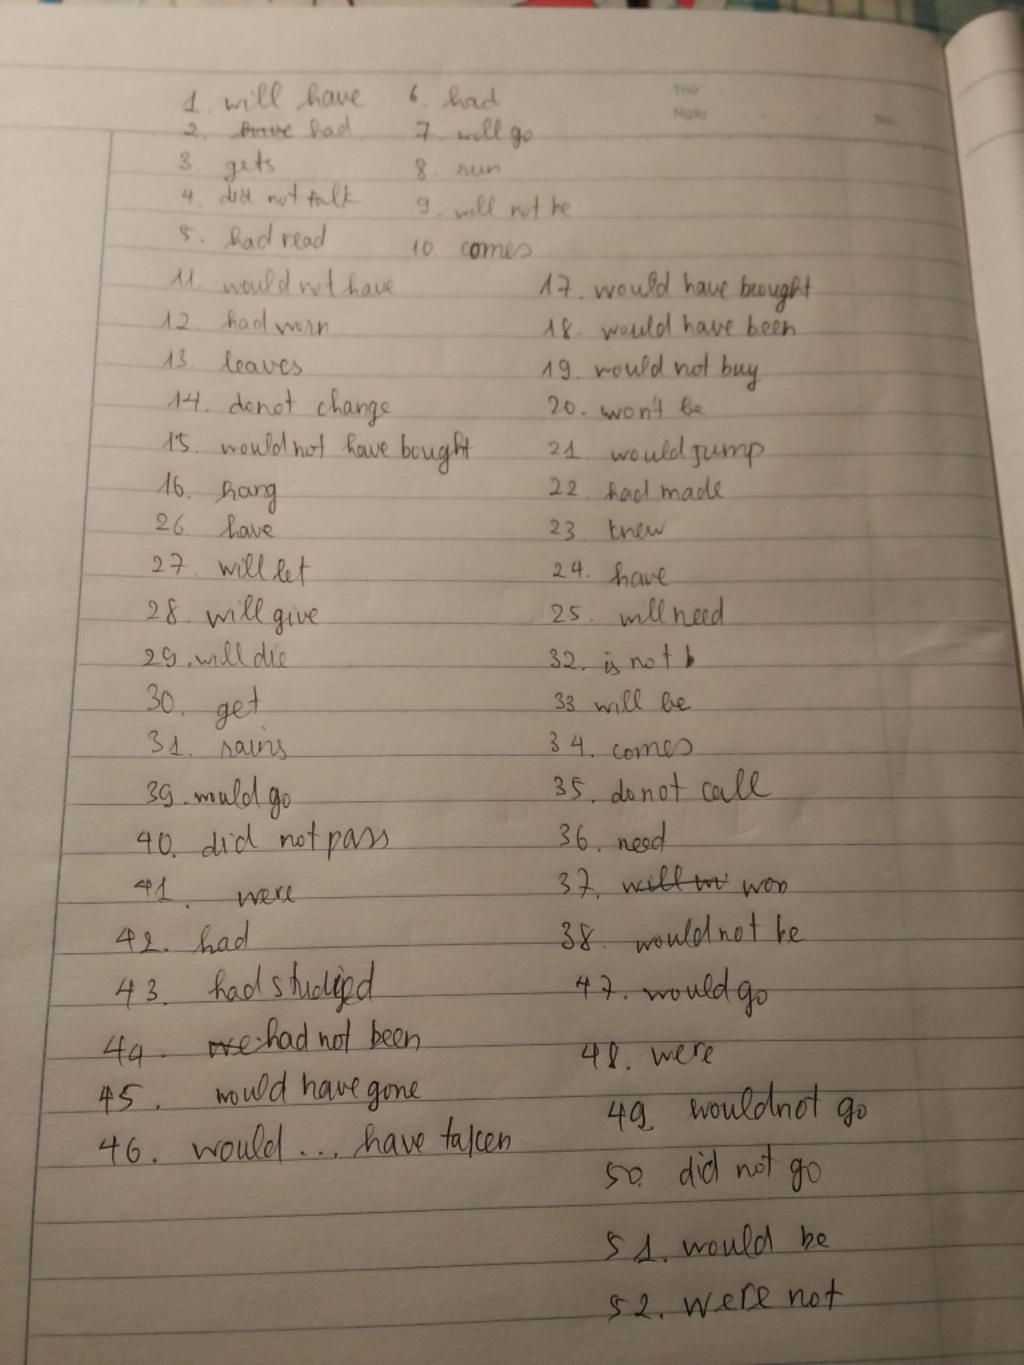 Thứ
Ngày
No.
1. will have 6. had
2. have had 7. will go
3. gets 8. run
4. did not talk 9. will not be
5. had read 10. comes
11. would not have 17. would have brought
12. had worn 18. would have been
13. leaves 19. would not buy
14. donot change 20. won't be
15. would not have bought 21. would jump
16. hang 22. had made
26. have 23. knew
27. will let 24. have
28. will give 25. will need
29. will die 32. is not b
30. get 33 will be
31. rains 34. comes
39. would go 35. donot call
40. did not pass 36. need
41. were 37. will w won
42. had 38. would not be
43. had studied 47. would go
44. we had not been 48. were
45. would have gone 49. wouldnot go
46. would ... have taken 50. did not go
51. would be
52. were not